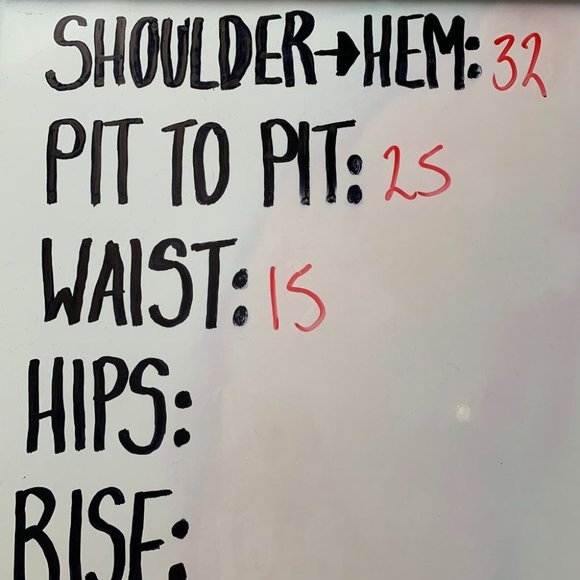 SHOULDER→HEM: 32
PIT TO PIT: 25
WAIST: 15
HIPS:
RISE: